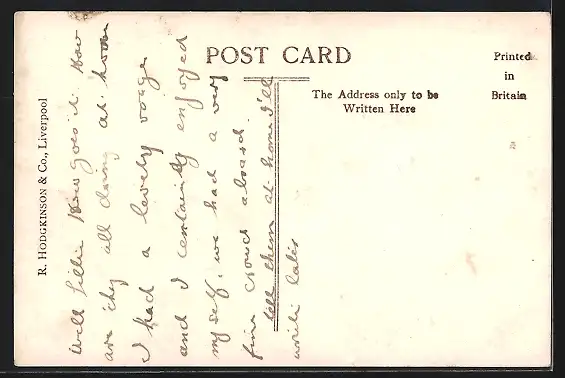 POST CARD
Printed
in
Britain
The Address only to be
Written Here
R. HODGKINSON & Co., Liverpool
Well how goes it. How
are they all doing at home
I had a lovely voage
and I certainly enjoyed
myself. we had a very
fine crowd aboard.
tell them at home I'll
write later